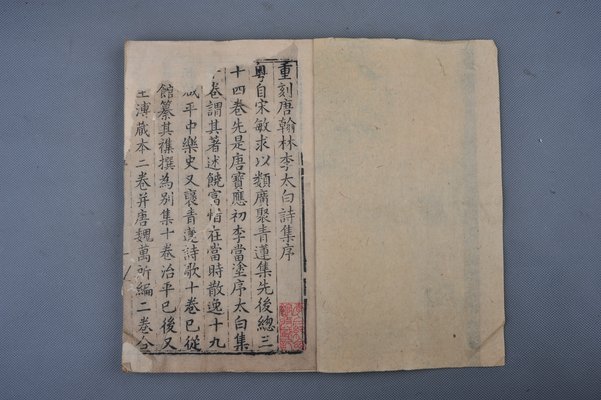 重刻唐翰林李太白詩集序
粤自宋敏求以類廣聚青蓮集先後總三
十四卷先是唐寶應初李當塗序太白集
卷謂其著述饒富惜在當時散逸十九
咸平中樂史又裒青蓮詩歌十卷已從
館纂其襍撰為別集十卷治平已後又
王溥藏本二卷并唐魏萬所編二卷合